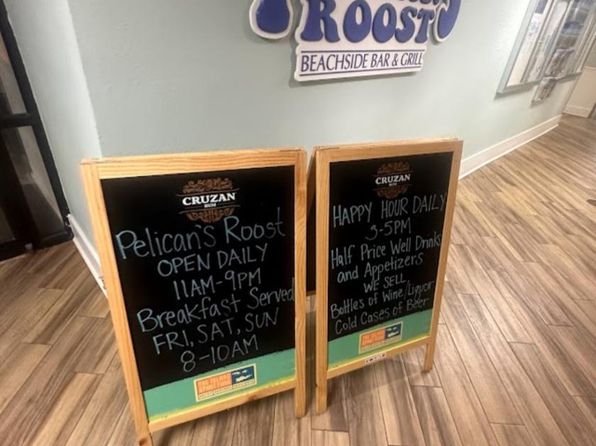 ROOST
BEACHSIDE BAR & GRILL
CRUZAN
RUM
Pelican's Roost
OPEN DAILY
11AM-9PM
Breakfast Served
FRI, SAT, SUN
8-10AM
CRUZAN
RUM
HAPPY HOUR DAILY
3-5PM
Half Price Well Drinks
and Appetizers
WE SELL
Bottles of Wine/Liquor
Cold Cases of Beer